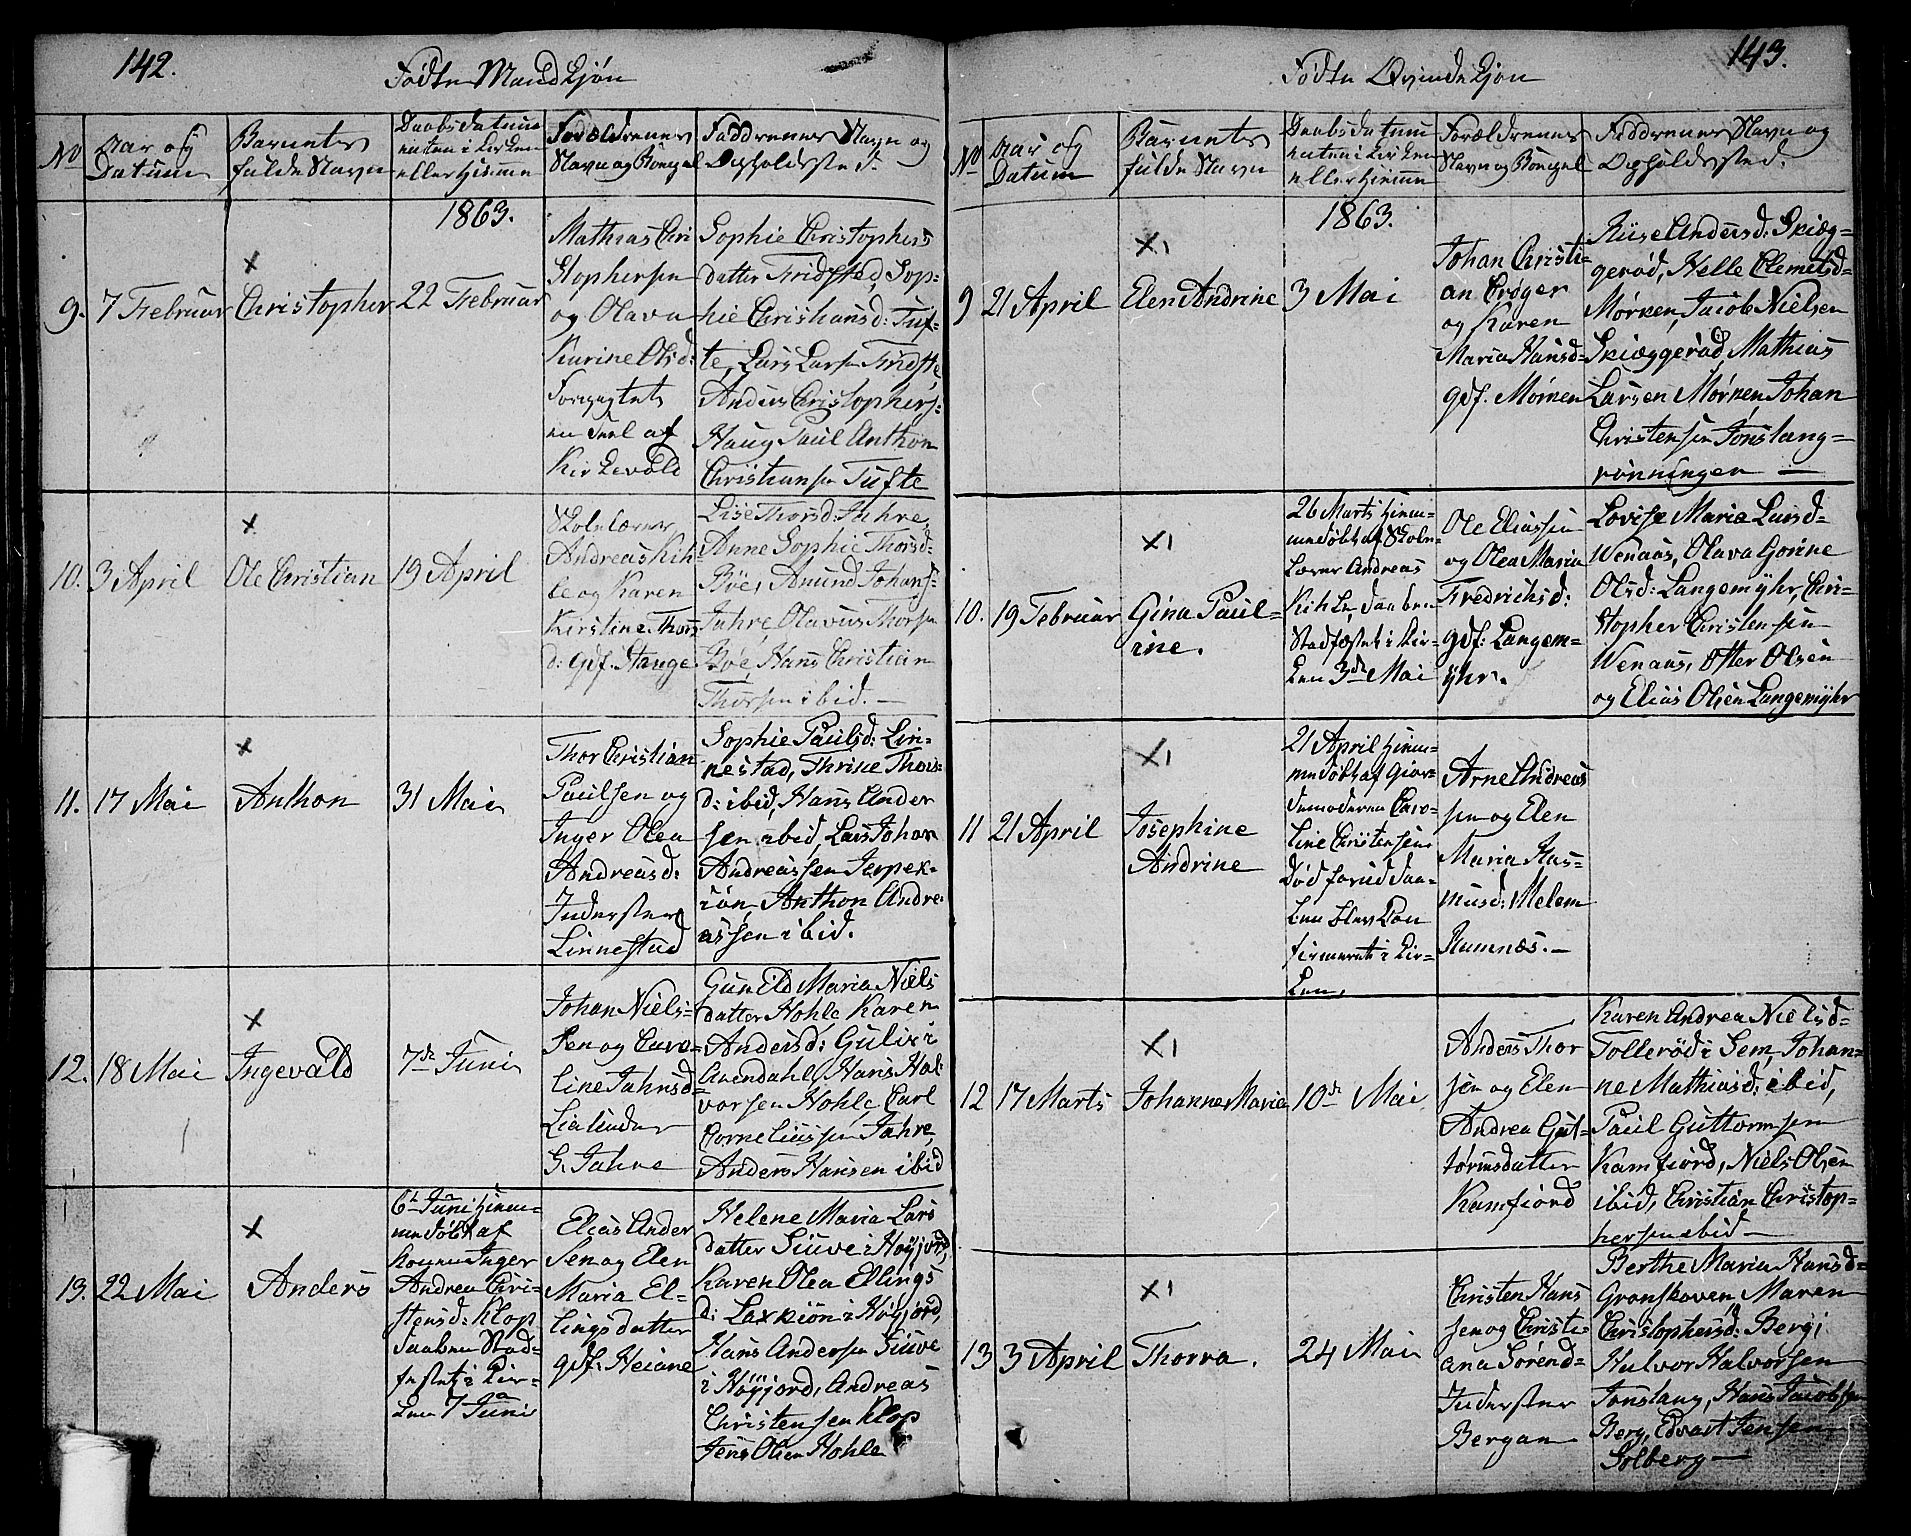 142.
Fødte Mandkjøn
No
Aar og
Datum
Barnets
fulde Navn
Daabsdatum
enten i Kirken
eller Hiemme
Forældrenes
Navn og Bopæl
Faddrenes Navn og
Opholdssted.
1863.
9.
7 Februar
×
Christopher
22 Februar
Mathias Chri
stophersen
og Olava
Karine Olsd:
Forpagtet
en Deel af
Kirkevold
Sophie Christophers
datter Fridsted, Sop-
hie Christiansd: Tuf-
te, Lars Larsen Fridste
Anders Christophers-
Haug Paul Anthon
Christiansen Tufte
10.
3 April
×
Ole Christian
19 April
Skolelærer
Andreas Kih-
le og Karen
Kirstine Thors
d: gdf. Stange
Lise Thorsd: Jahre,
Anne Sophie Thorsd-
Bøe, Amund Johans-
Jahre Olavus Thorsen
Bøe, Hans Christian
Thorsen ibid. —
11.
17 Mai
×
Anthon
31 Mai
Thor Christian
Paulsen og
Inger Olea
Andreasd:
Inderster
Linnestad
Sophie Paulsd: Lin-
nestad, Thrine Thors-
d: ibid, Hans Ander
sen ibid, Lars Johan
Andreassen Jerpek-
iøn Anthon Andre-
assen ibid.
12.
18 Mai
×
Ingevald
7de Juni
Johan Niels-
sen og Caro-
line Jahnsd-
Lialunder
G. Jahre
Gunild Maria Niels
datter Hohle Karen
Andersd: Gulix i
Arendahl, Hans Hal-
vorsen Hohle Carl
Corneliussen Jahre,
Anders Hansen ibid
13.
22 Mai
×
Anders
6te Juni Hiem-
medøbt af
Konen Inger
Andrea Chri-
stensd: Klop
Daaben Stad-
festet i Kir-
ken 7 Juni
Elias Ander
sen og Elen
Maria El-
lingsdatter
gdf: Heiane
Helene Maria Lars
datter Siuve i Høyjord,
Karen Olea Ellings
d: Laxkiøn i Høyjord,
Hans Andersen Siuve
i Høyjord, Andreas
Christensen Klop
Jens Olsen Hohle
143.
Fødte Qvindekjøn
No
Aar og
Datum
Barnets
fulde Navn
Daabsdatum
enten i Kirken
eller Hiemme
Forældrenes
Navn og Bopæl
Faddrenes Navn og
Opholdssted.
1863.
9
21 April
×1
Elen Andrine
3 Mai
Johan Christi-
an Crøger
og Karen
Maria Hansd-
gdf. Mørken
Riise Andersd: Skiæg-
gerød, Helle Clemetsd-
Mørken, Jacob Nielsen
Skiæggerød Mathias
Larsen Mørken Johan
Christensen Jonslang-
rønningen —
10.
19 Februar
×1
Gina Paul-
ine.
26 Marts Hiem-
medøbt af Skole-
Lærer Andreas
Kihle, Daaben
Stadfæstet i Kir-
ken 3de Mai
Ole Eliassen
og Olea Maria
Fredrichsd:
gdf: Langem-
yhr.
Lovise Marie Larsd-
Wenaas, Olava Gorine
Olsd: Langemyhr, Chri-
stopher Christensen
Wenaas, Otter Olsen
og Elias Olsen Langemyhr
11
21 April
×1
Josephine
Andrine
21 April Hiem-
medøbt af Gior-
demoderen Caro-
line Christensen
Død forud Daa-
ben blev Con
firmeret i Kir-
ken,
Arne Andreas
sen og Elen
Maria Ras-
musd: Melem
Ramnæs. —
12
17 Marts
×1
Johanne Marie
10de Mai
Anders Thor
sen og Elen
Andrea Gut-
tormsdatter
Kamfjord
Karen Andrea Nielsd-
Tollerød i Sem, Johan-
ne Mathiasd: ibid,
Paul Guttormsen
Kamfjord, Niels Olsen
ibid, Christian Christop-
hersen ibid —
13
3 April
×1
Thorva.
24 Mai
Christen Hans
sen og Christi-
ana Sørend-
Inderster
Bergan
Berthe Maria Hansd-
Gronskoven Maren
Christophersd: Berg,
Halvor Halvorsen
Jonslang, Hans Jacobsen
Berg, Edvart Jensen
Solberg —